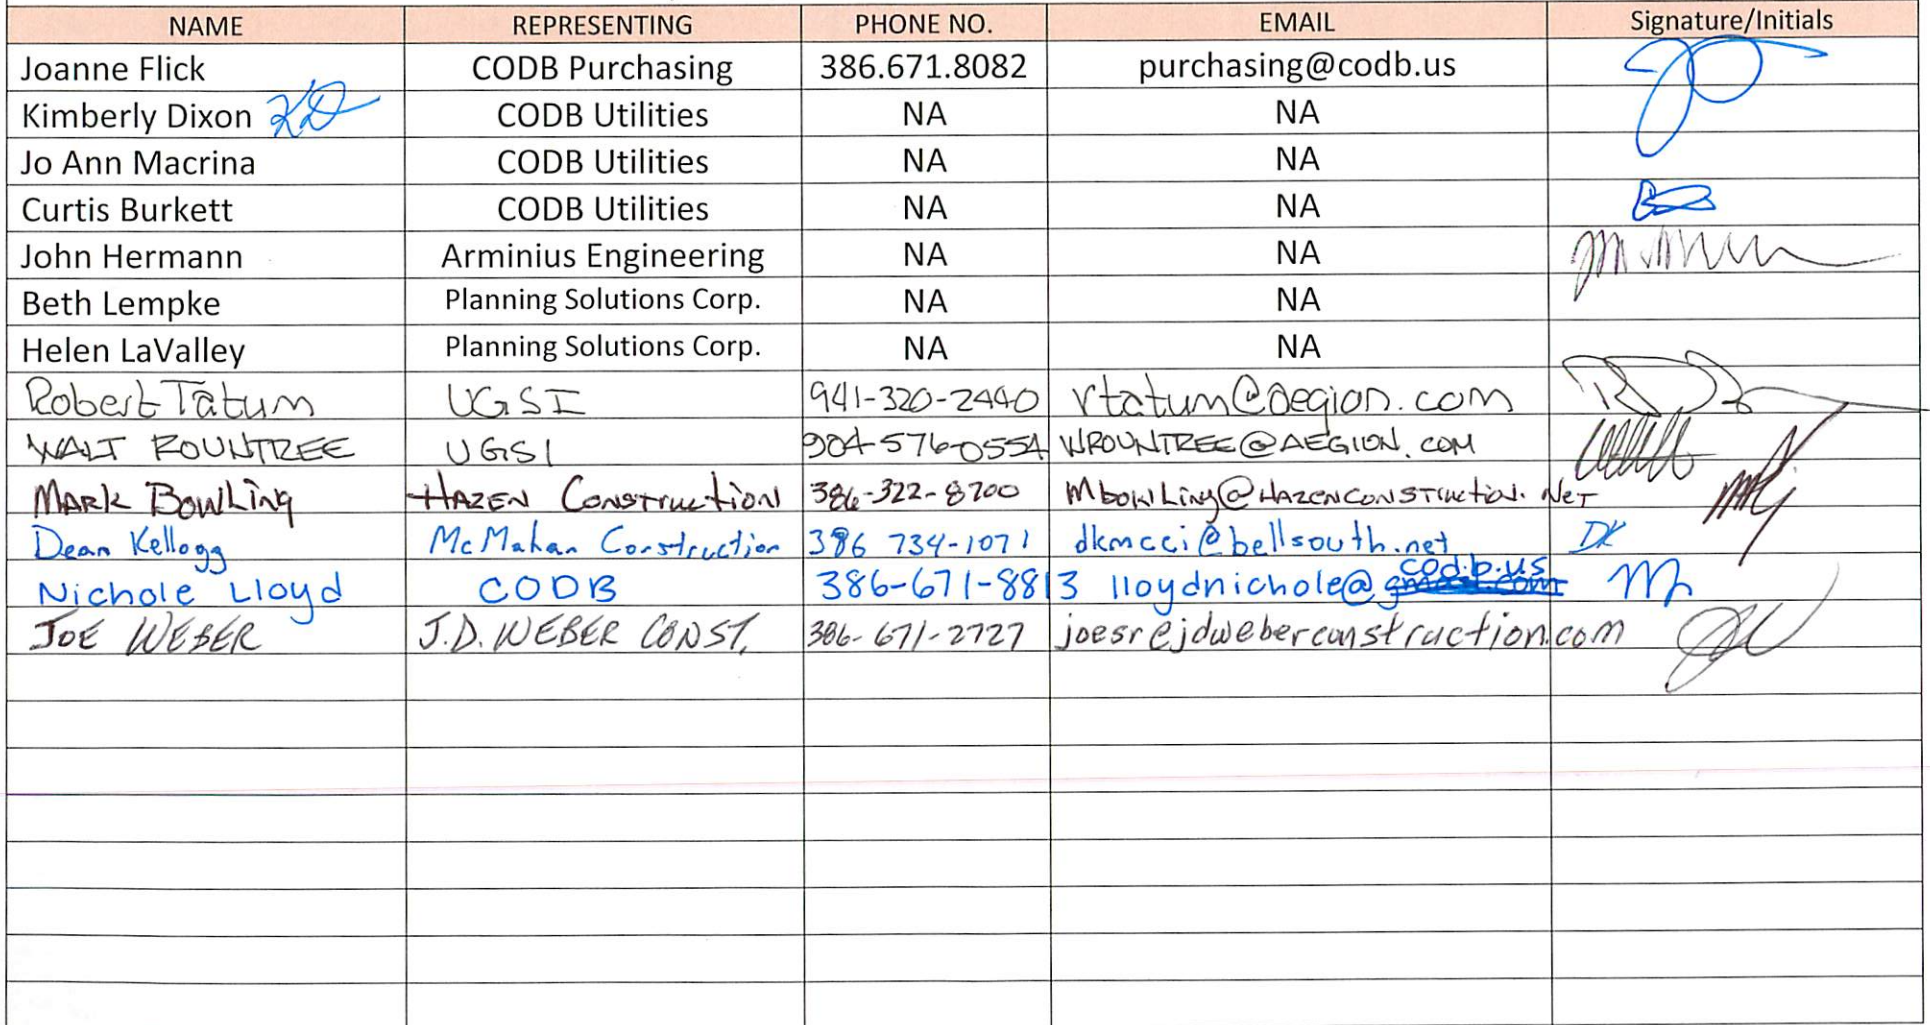 NAME REPRESENTING PHONE NO. EMAIL Signature/Initials
Joanne Flick CODB Purchasing 386.671.8082 purchasing@codb.us
Kimberly Dixon KD CODB Utilities NA NA
Jo Ann Macrina CODB Utilities NA NA
Curtis Burkett CODB Utilities NA NA
John Hermann Arminius Engineering NA NA
Beth Lempke Planning Solutions Corp. NA NA
Helen LaValley Planning Solutions Corp. NA NA
Robert Tatum UGSI 941-320-2440 rtatum@aegion.com
WALT ROUNTREE UGSI 904-576-0554 WROUNTREE@AEGION.COM
MARK BOWLING HAZEN CONSTRUCTION 386-322-8700 MbowLing@HAZENCONSTRUCTION.NET
Dean Kellogg McMahan Construction 386 734-1071 dkmcci@bellsouth.net DK
Nichole Lloyd CODB 386-671-8813 lloydnichole@codb.us
JOE WEBER J.D. WEBER CONST. 386-671-2727 joesr@jdweberconstruction.com